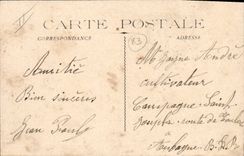 CARTE POSTALE
CORRESPONDANCE
ADRESSE
83
Amitié
Bien sincères
Jean Paul
Mr Jayne André
cultivateur
Campagne Saint
Joseph route de Toulon
Aubagne B.d.R